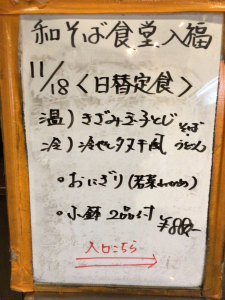 和そば食堂 入福
11/18 〈日替定食〉
温) きざみ玉子とじ そば
冷) 冷やしタヌキ風 うどん
• おにぎり (若菜わかめ)
• 小鉢 2品付 ¥880-
入口こちら